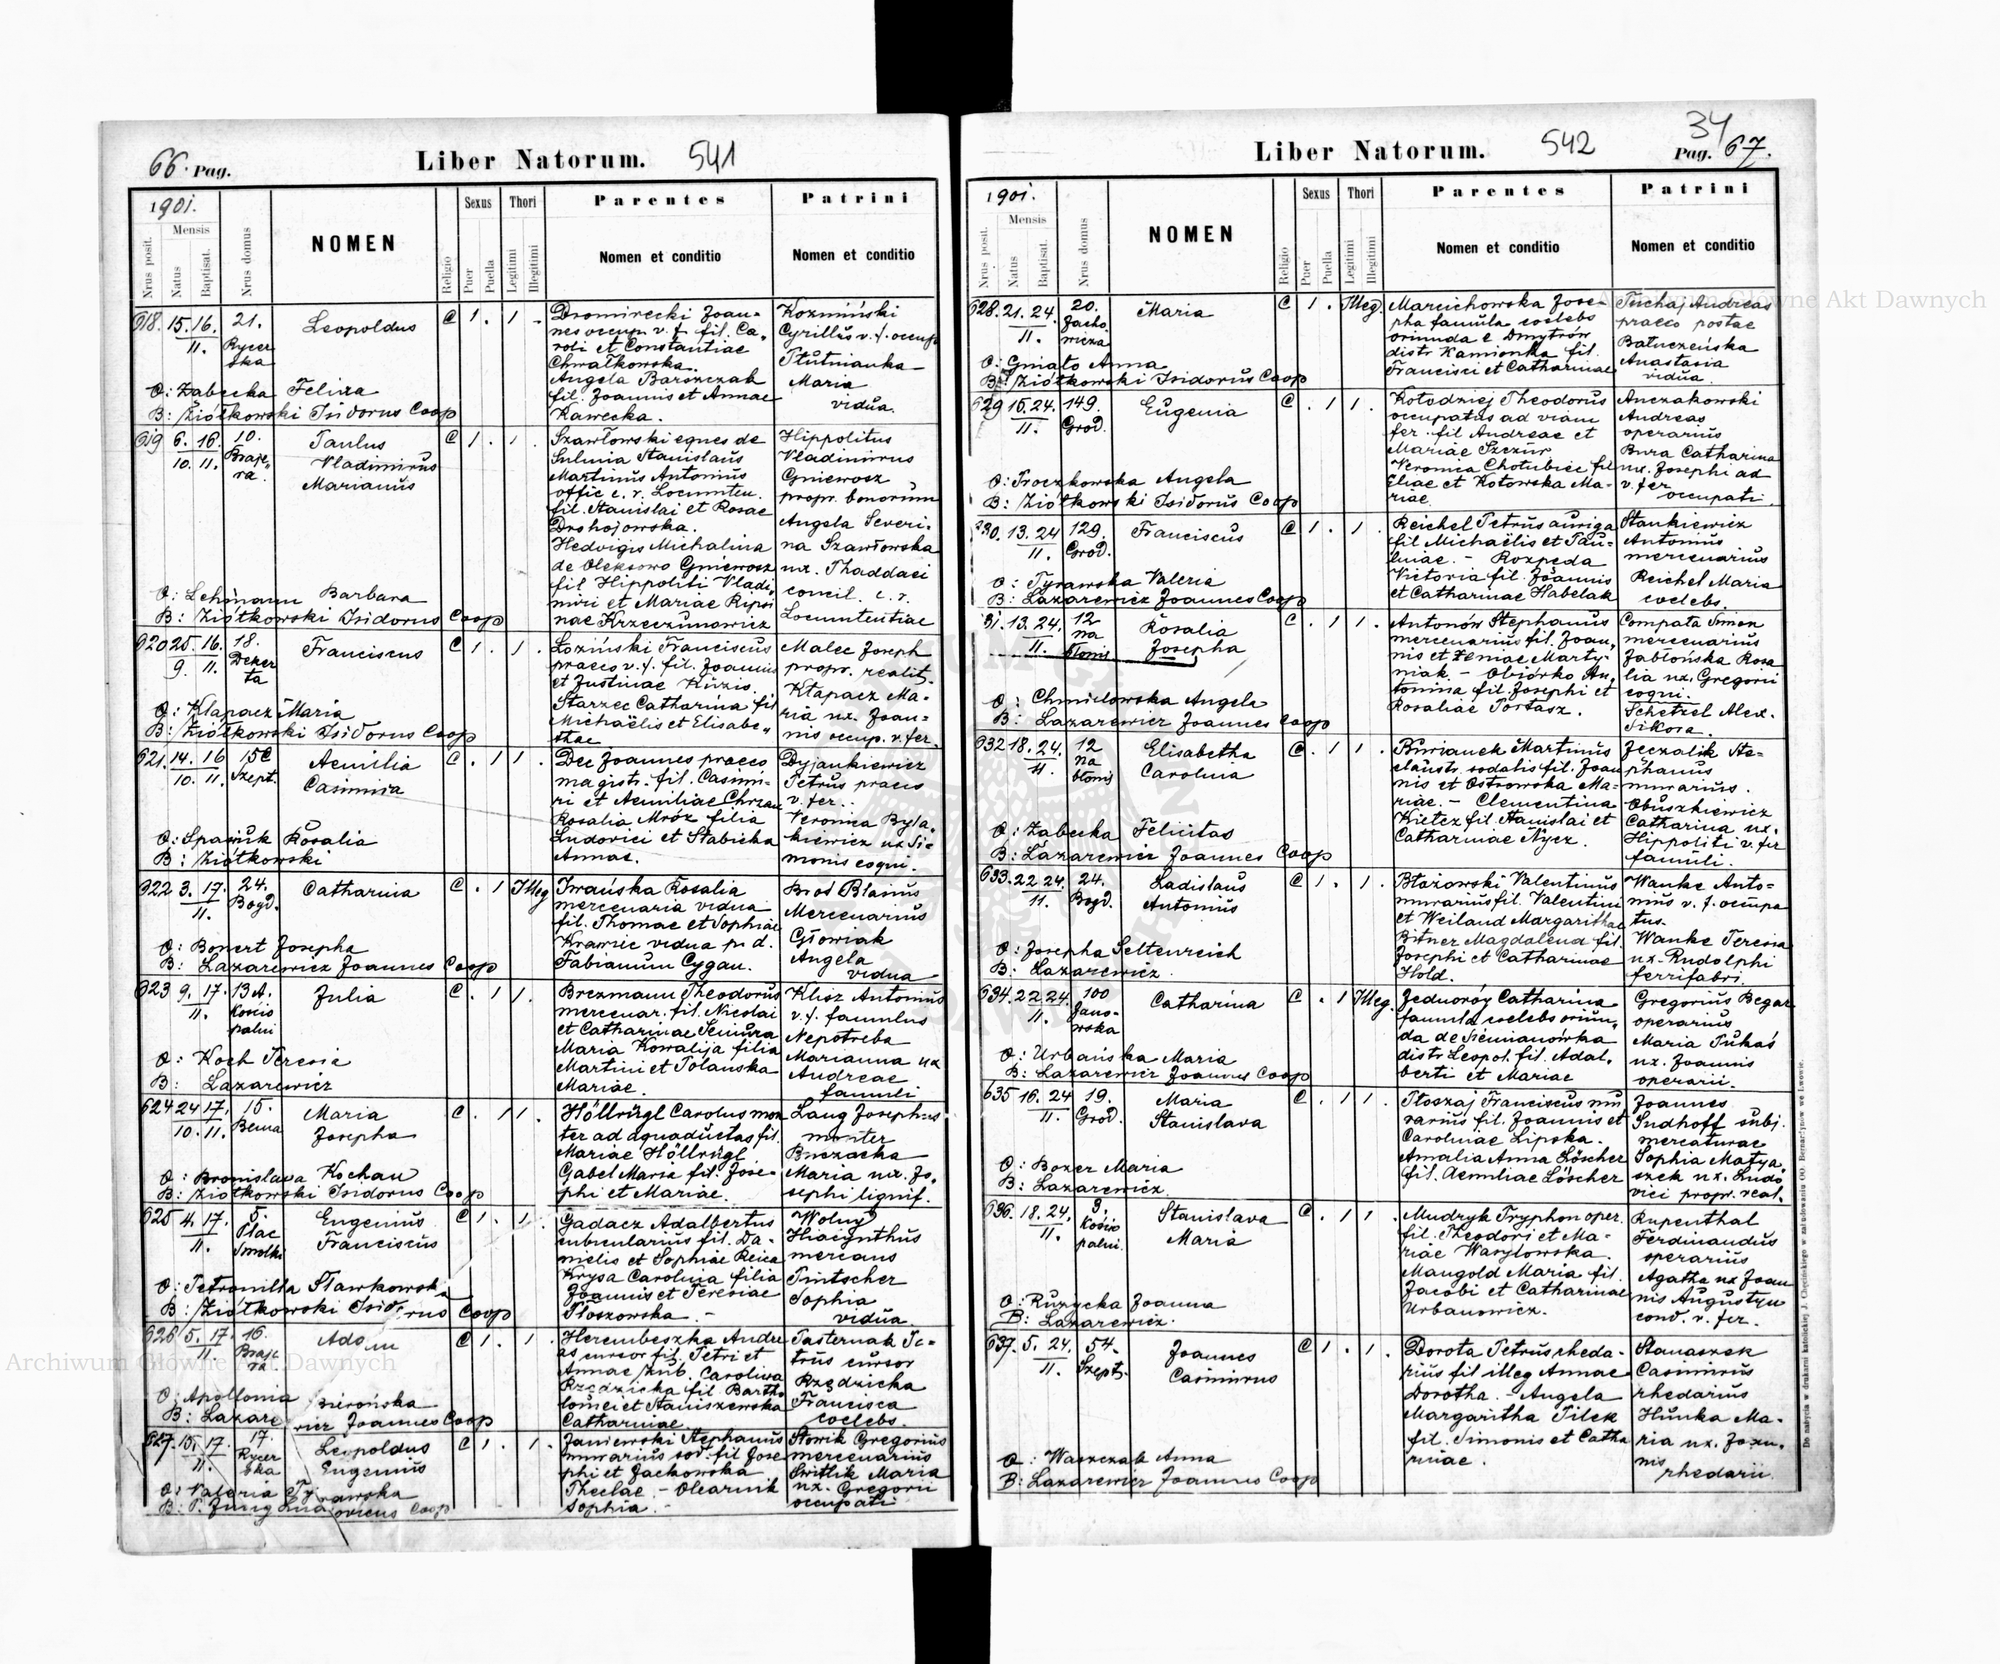 66. Pag.
Liber Natorum.
541
1901.
Nrus posit.
Mensis
Natus
Baptisat.
Nrus domus
NOMEN
Religio
Sexus
Puer
Puella
Thori
Legitimi
Illegitimi
Parentes
Nomen et conditio
Patrini
Nomen et conditio
618. 15. 16. 21. Leopoldus C 1. 1.
II. Rycer
ska
O: Żabecka Felixa
B: Ziółkowski Isidorus Coop
Dromirecki Joan-
nes occup. v. f. fil. Ca-
roli et Constantiae
Chwałkowska.
Angela Barszczak
fil. Joannis et Annae
Kawecka.
Kozmiński
Cyrillus v. f. occup
Maria
vidua.
619 6. 16. 10. Paulus C 1. 1.
10. II. Braje-
ra. Vladimirus
Marianus
O: Lehmann Barbara
B: Ziółkowski Isidorus Coop
Szawłowski eques de
Sulima Stanislaus
Martinus Antonius
offic c. r. Locumten.
fil. Stanislai et Rosae
Drohojowska.
Hedvigis Michalina
de Oleksowo Gniewosz
fil. Hippoliti Vladi-
miri et Mariae Ripsi
nae Krzeczunowicz
Hippolitus
Vladimirus
Gniewosz
propr. bonorum
Angela Severi-
na Szawłowska
ux. Thaddaei
concil. c. r.
Locumtentiae
620 25. 16. 18. Franciscus C 1. 1.
9. II. Deker
ta
O: Klapacz Maria
B: Ziółkowski Isidorus Coop
Łoziński Franciscus
praeco v. f. fil. Joannis
et Justinae
Starzec Catharina fil
Michaëlis et Elisabe-
thae
Malec Joseph
propr. realit.
Klapacz Ma-
ria ux. Joan-
nis occup. v. fer.
621. 14. 16 15C Aemilia C. 1 1.
10. II. Szept. Casimira
O: Rosalia
B: Ziółkowski
Dec Joannes praeco
magistr. fil. Casimi-
ri et Aemiliae
Rosalia Mróz filia
Ludovici et Słabicka
Annae.
Dyjankiewicz
Petrus praeco
v. fer.
Veronica Byla-
kiewicz ux Si-
monis coqui.
622 3. 17. 24. Catharina C. 1 Illeg
II. Bogd.
O: Bonert Josepha
B: Lazarewicz Joannes Coop
Iwańska Rosalia
mercenaria vidua
fil. Thomae et Sophiae
Krawiec vidua p. d.
Fabianum Cygan.
Brod Blasius
Mercenarius
Głowiak
Angela
vidua
623 9. 17. 13A. Julia C. 1 1.
II. Kościo
palni
O: Koch Teresie
B: Lazarewicz
Brezmann Theodorus
mercenar. fil. Nicolai
et Catharinae
Maria Kowalija filia
Martini et Polanska
Mariae.
Klisz Antonius
v. f. famulus
Nepotreba
Marianna ux
Andreae
famuli
624 24 17. 15. Maria C. 1 1.
10. II. Bema Josepha
O: Bronislava Kochan
B: Ziółkowski Isidorus Coop
Höllrügl Carolus mon
ter ad aquaductas fil.
Mariae Höllrügl
Gabel Marie fil. Jose-
phi et Mariae.
Lang Josephus
monter
Buczacka
Maria ux. Jo-
sephi lignif.
625 4. 17. 5. Eugenius C 1. 1.
II. Plac
Smolki Franciscus
O: Petronilla Sławkowska
B: Ziółkowski Isidorus Coop
Gadacz Adalbertus
cubicularius fil. Da-
nielis et Sophiae
Krysa Carolina filia
Joannis et Teresiae
Płoszowska -
Wolny
Hiacynthus
mercans
Tintscher
Sophia
vidua.
626 5. 17. 16. Adam C 1. 1.
II Braje
ra
O: Apollonia Bierońska
B: Lazarewicz Joannes Coop
Herembeszka Andre
as cursor fil. Petri et
Annae Carolina
Rzędzicka fil. Barth-
lomei et Staniszewska
Catharinae.
Pasternak Pe-
trus cursor
Rzędzicka
Francisca
coelebs.
627 15. 17. 17. Leopoldus C 1. 1.
II. Rycer
ska Eugenius
O: Valeria Tyrawska
B: P. Jung Ludovicus Coop
Janiewski Stephanus
murarius sod. fil Jose
phi et Jackowska
Theclae. - Olearnik
Sophia.
Słowik Gregorius
mercenarius
Switlik Maria
ux. Gregorii
occupati
Liber Natorum.
542
34
Pag. 67.
1901.
Nrus posit.
Mensis
Natus
Baptisat.
Nrus domus
NOMEN
Religio
Sexus
Puer
Puella
Thori
Legitimi
Illegitimi
Parentes
Nomen et conditio
Patrini
Nomen et conditio
628. 21. 24. 20. Maria C 1. Illeg.
II. Zacha
wicza
O: Gniato Anna
B: Ziółkowski Isidorus Coop
Marcichowska Jose-
pha famula coelebs
oriunda e Dmytrów
distr Kamionka fil.
Francisci et Catharinae
Puchaj Andreas
praeco postae
Anastasia
vidua.
629 15. 24. 149. Eugenia C. 1 1.
II. Grod.
O: Proczkowska Angela
B: Ziółkowski Isidorus Coop
Kołodziej Theodorus
occupatus ad viam
fer. fil Andreae et
Mariae Szczur
Veronica Chołubiec fil
Eliae et Kotowska Ma-
riae
Anczakowski
Andreas
operarius
Bura Catharina
ux. Josephi ad
v. fer
occupati
630. 13. 24 129. Franciscus C 1. 1.
II. Grod.
O: Tyrawska Valeria
B: Lazarewicz Joannes Coop
Reichel Petrus auriga
fil Michaëlis et Pau-
linae. - Rozpęda
Victoria fil. Joannis
et Catharinae Habelak
Stankiewicz
Antonius
mercenarius
Reichel Maria
coelebs.
31. 13. 24. 12 Rosalia C. 1 1.
II. na
błonie Josepha
O: Chmielowska Angela
B: Lazarewicz Joannes Coop
Antonów Stephanus
mercenarius fil. Joan-
nis et Xeniae Marty-
niak. - Obiórko An-
tonina fil. Josephi et
Rosaliae Portasz.
Compata Simon
mercenarius
Jabłońska Rosa
lia ux. Gregorii
coqui.
Schetzel Alex.
Sikora.
632 18. 24. 12 Elisabetha C. 1 1.
II. na
błonie Carolina
O: Żabecka Felicitas
B: Lazarewicz Joannes Coop
Burianek Martinus
claustr. sodalis fil. Joan
nis et Ostrowska Ma-
riae. - Clementina
Kietcz fil. Stanislai et
Catharinae Nycz.
Jeczalik Ste-
phanus
murarius.
Obuszkiewicz
Catharina ux.
Hippoliti v. fer
famuli.
633. 22 24. 24. Ladislaus C 1. 1.
II. Bogd. Antonius
O: Josepha Seltenreich
B: Lazarewicz.
Błażowski Valentinus
murarius fil. Valentini
et Weiland Margarithae
Bitner Magdalena fil.
Josephi et Catharinae
Hold.
Wanke Anto-
nius v. f. occupa
tus.
Wanke Teresia
ux. Rudolphi
ferrifabri.
634. 22 24. 100 Catharina C. 1 Illeg.
II. Jano-
wska
O: Urbańska Maria
B: Lazarewicz Joannes Coop
Jednoróg Catharina
famula coelebs oriun-
da de Siemianówka
distr Leopol. fil. Adal-
berti et Mariae
Gregorius Begar
operarius
Maria Pukas
ux. Joannis
operarii.
635 16. 24 19. Maria C. 1 1.
II. Grod. Stanislava
O: Bozer Maria
B: Lazarewicz
Płoszaj Franciscus mu
rarius fil. Joannis et
Carolinae Lipska.
Amalia Anna Löscher
fil. Aemiliae Löscher
Joannes
Sudhoff subj.
mercaturae
Sophia Matya-
szek ux. Ludo
vici propr. real.
636. 18. 24. 9. Stanislava C. 1 1.
II. Kościo
palni. Maria
O: Ruzycka Joanna
B: Lazarewicz.
Mudryk Tryphon oper.
fil. Theodori et Ma-
riae Wasylowska.
Mangold Maria fil.
Jacobi et Catharinae
Urbanowicz.
Rupenthal
Ferdinandus
operarius
Agatha ux Joan
nis Augustyn
cond. v. fer.
637. 5. 24. 54. Joannes C 1. 1.
II. Szept. Casimirus
O: Waszczak Anna
B: Lazarewicz Joannes Coop
Dorota Petrus rheda-
rius fil illeg Annae
Dorotha. - Angela
Margaritha Pilek
fil. Simonis et Catha
rinae.
Stanaszek
Casimirus
rhedarius
Hunka Ma-
ria ux. Joan-
nis
rhedarii.
De nabycia w drukarni katolickiej J. Chęcińskiego w zabudowaniu OO. Bernardynów we Lwowie.
Archiwum Główne Akt Dawnych
Archiwum Główne Akt Dawnych